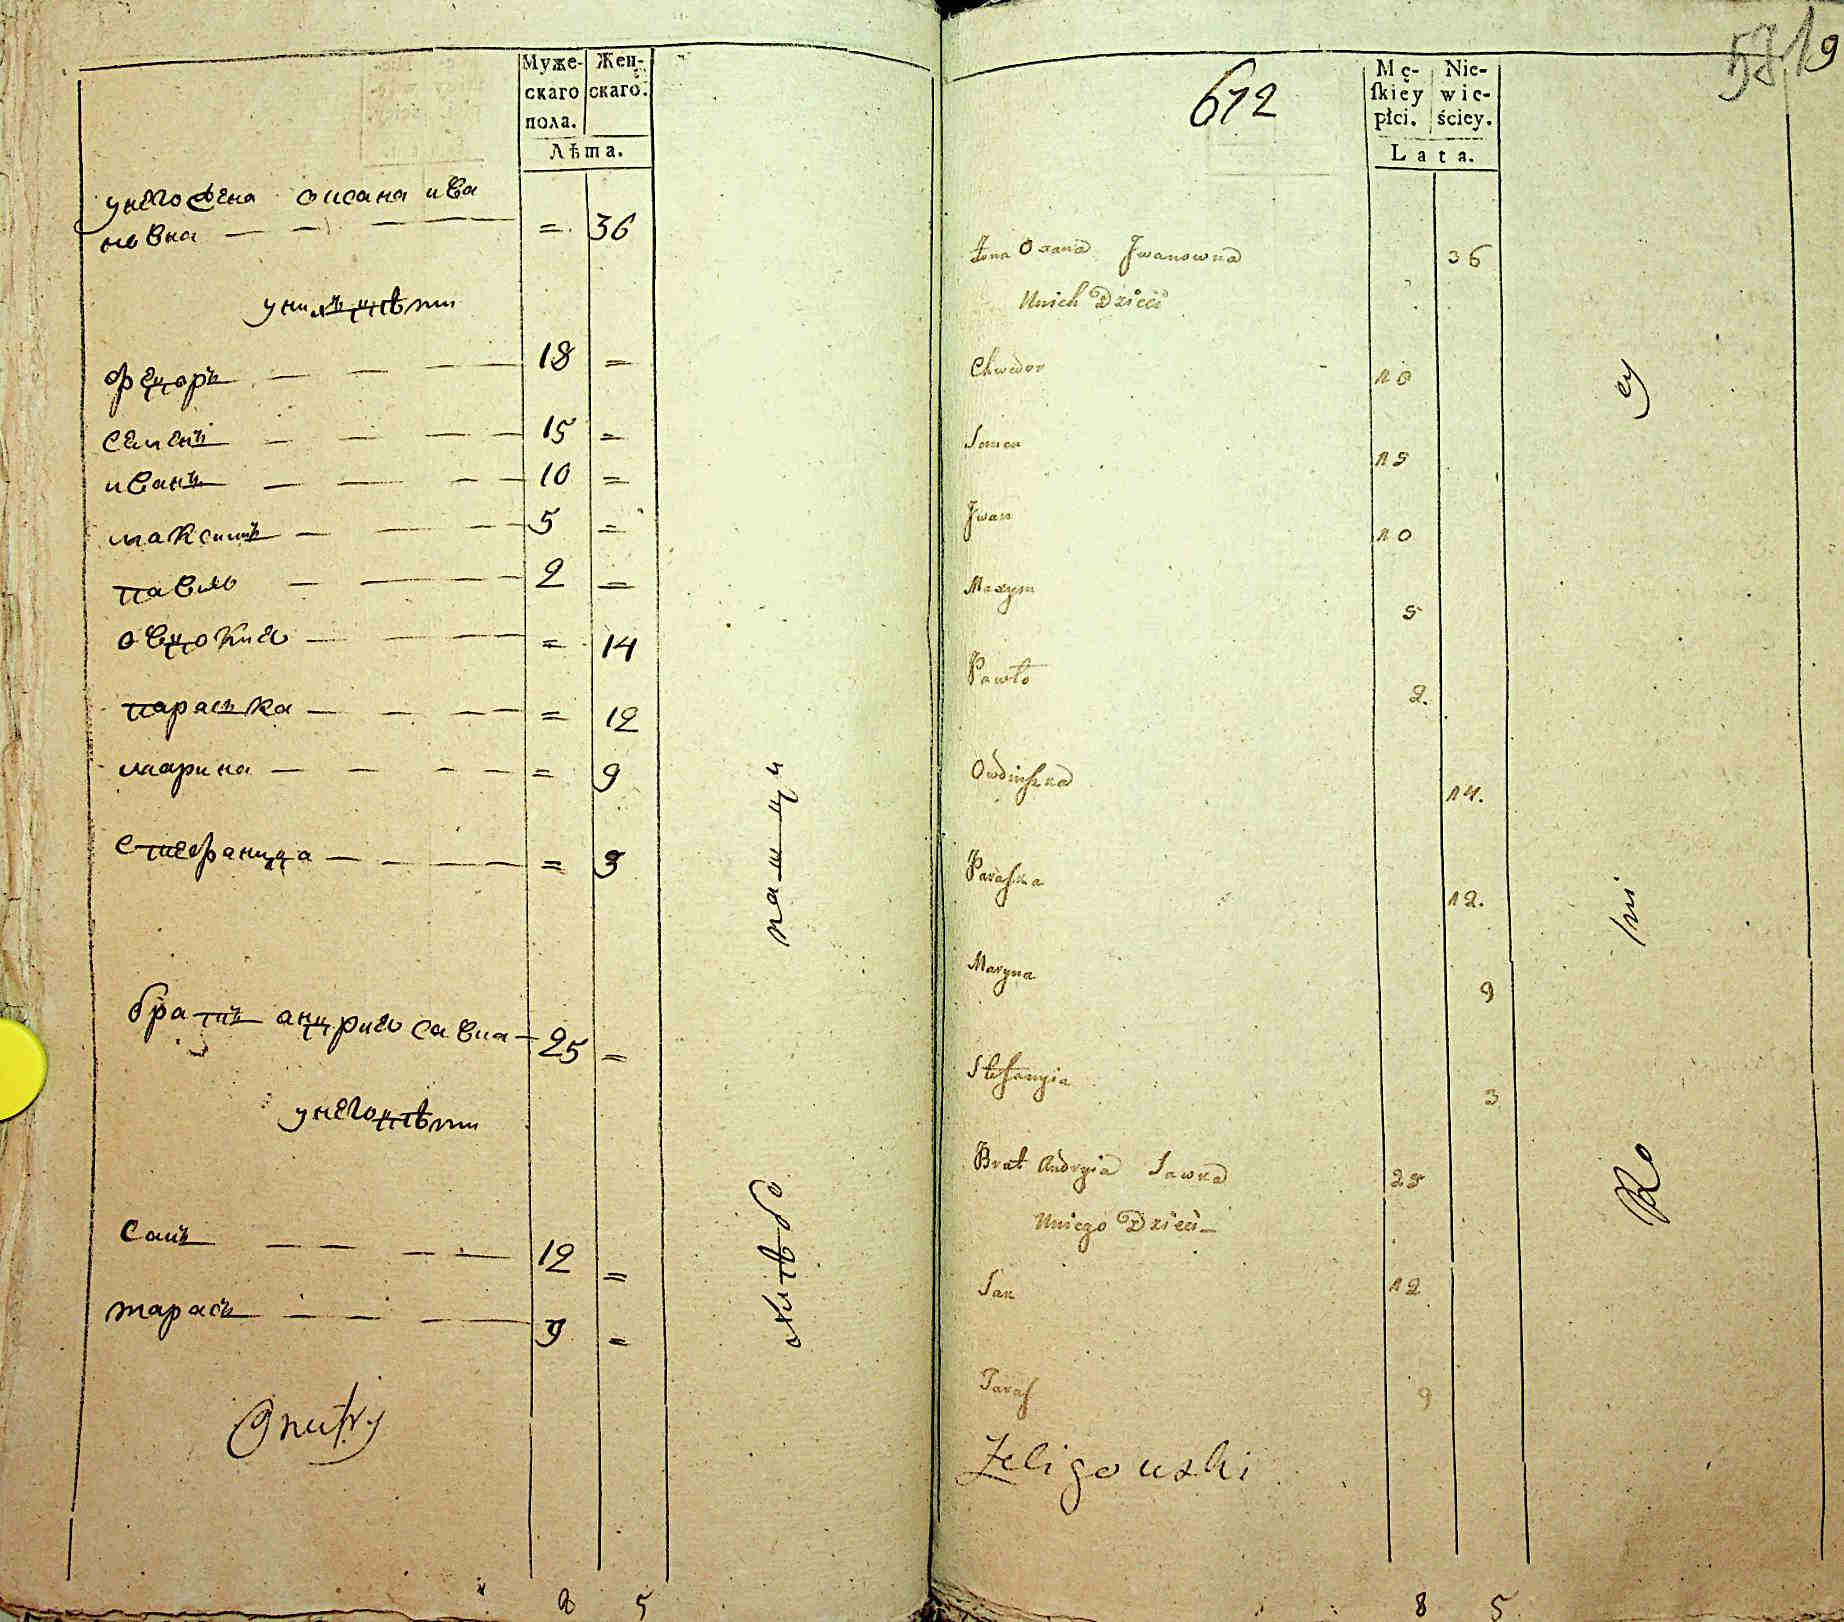 Муже-
скаго
пола.
Жен-
скаго.
Лѣта.
унего жена оксана ива
новна = 36
уних дѣти
федоръ 18 =
семенъ 15 =
иванъ 10 =
максимъ 5 =
павло 2 =
овдокия = 14
параска = 12
марина = 9
стефаница = 3
братъ андрия савка 25 =
унего дѣти
санъ 12 =
тарасъ 9 =
8 5
672
19
Mę-
ſkiey
płci.
Nie-
wie-
ściey.
Lata.
Żona Oxana Jwanowna 36
Unich Dzieci
Chwedor 18
Semen 15
Jwan 10
Maxym 5
Pawło 2.
Owdiuszka 14.
Paraska 12.
Maryna 9
Stefanyia 3
Brat Andryia Sawka 25
Uniego Dzieci
San 12
Taras 9
Zeligowski
8 5